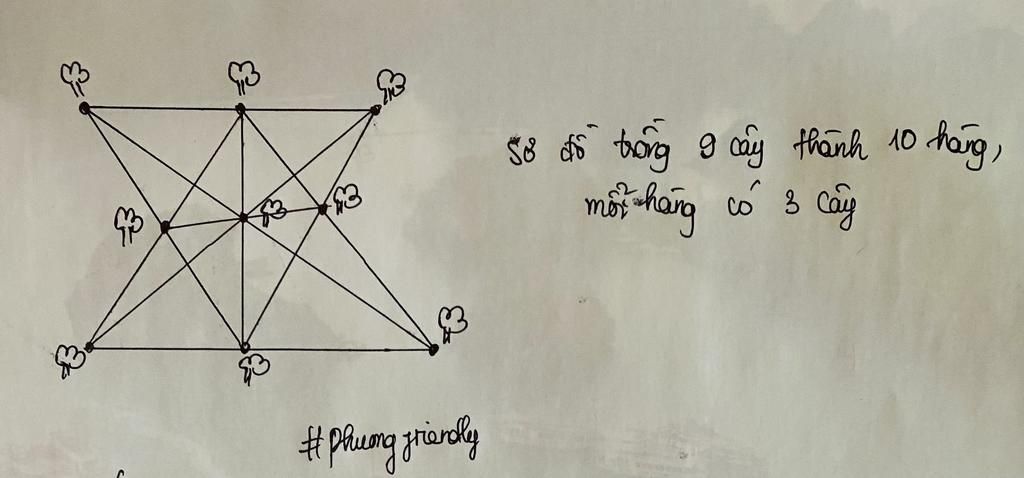 Sơ đồ trồng 9 cây thành 10 hàng,
mỗi hàng có 3 cây
#phuongfriendly